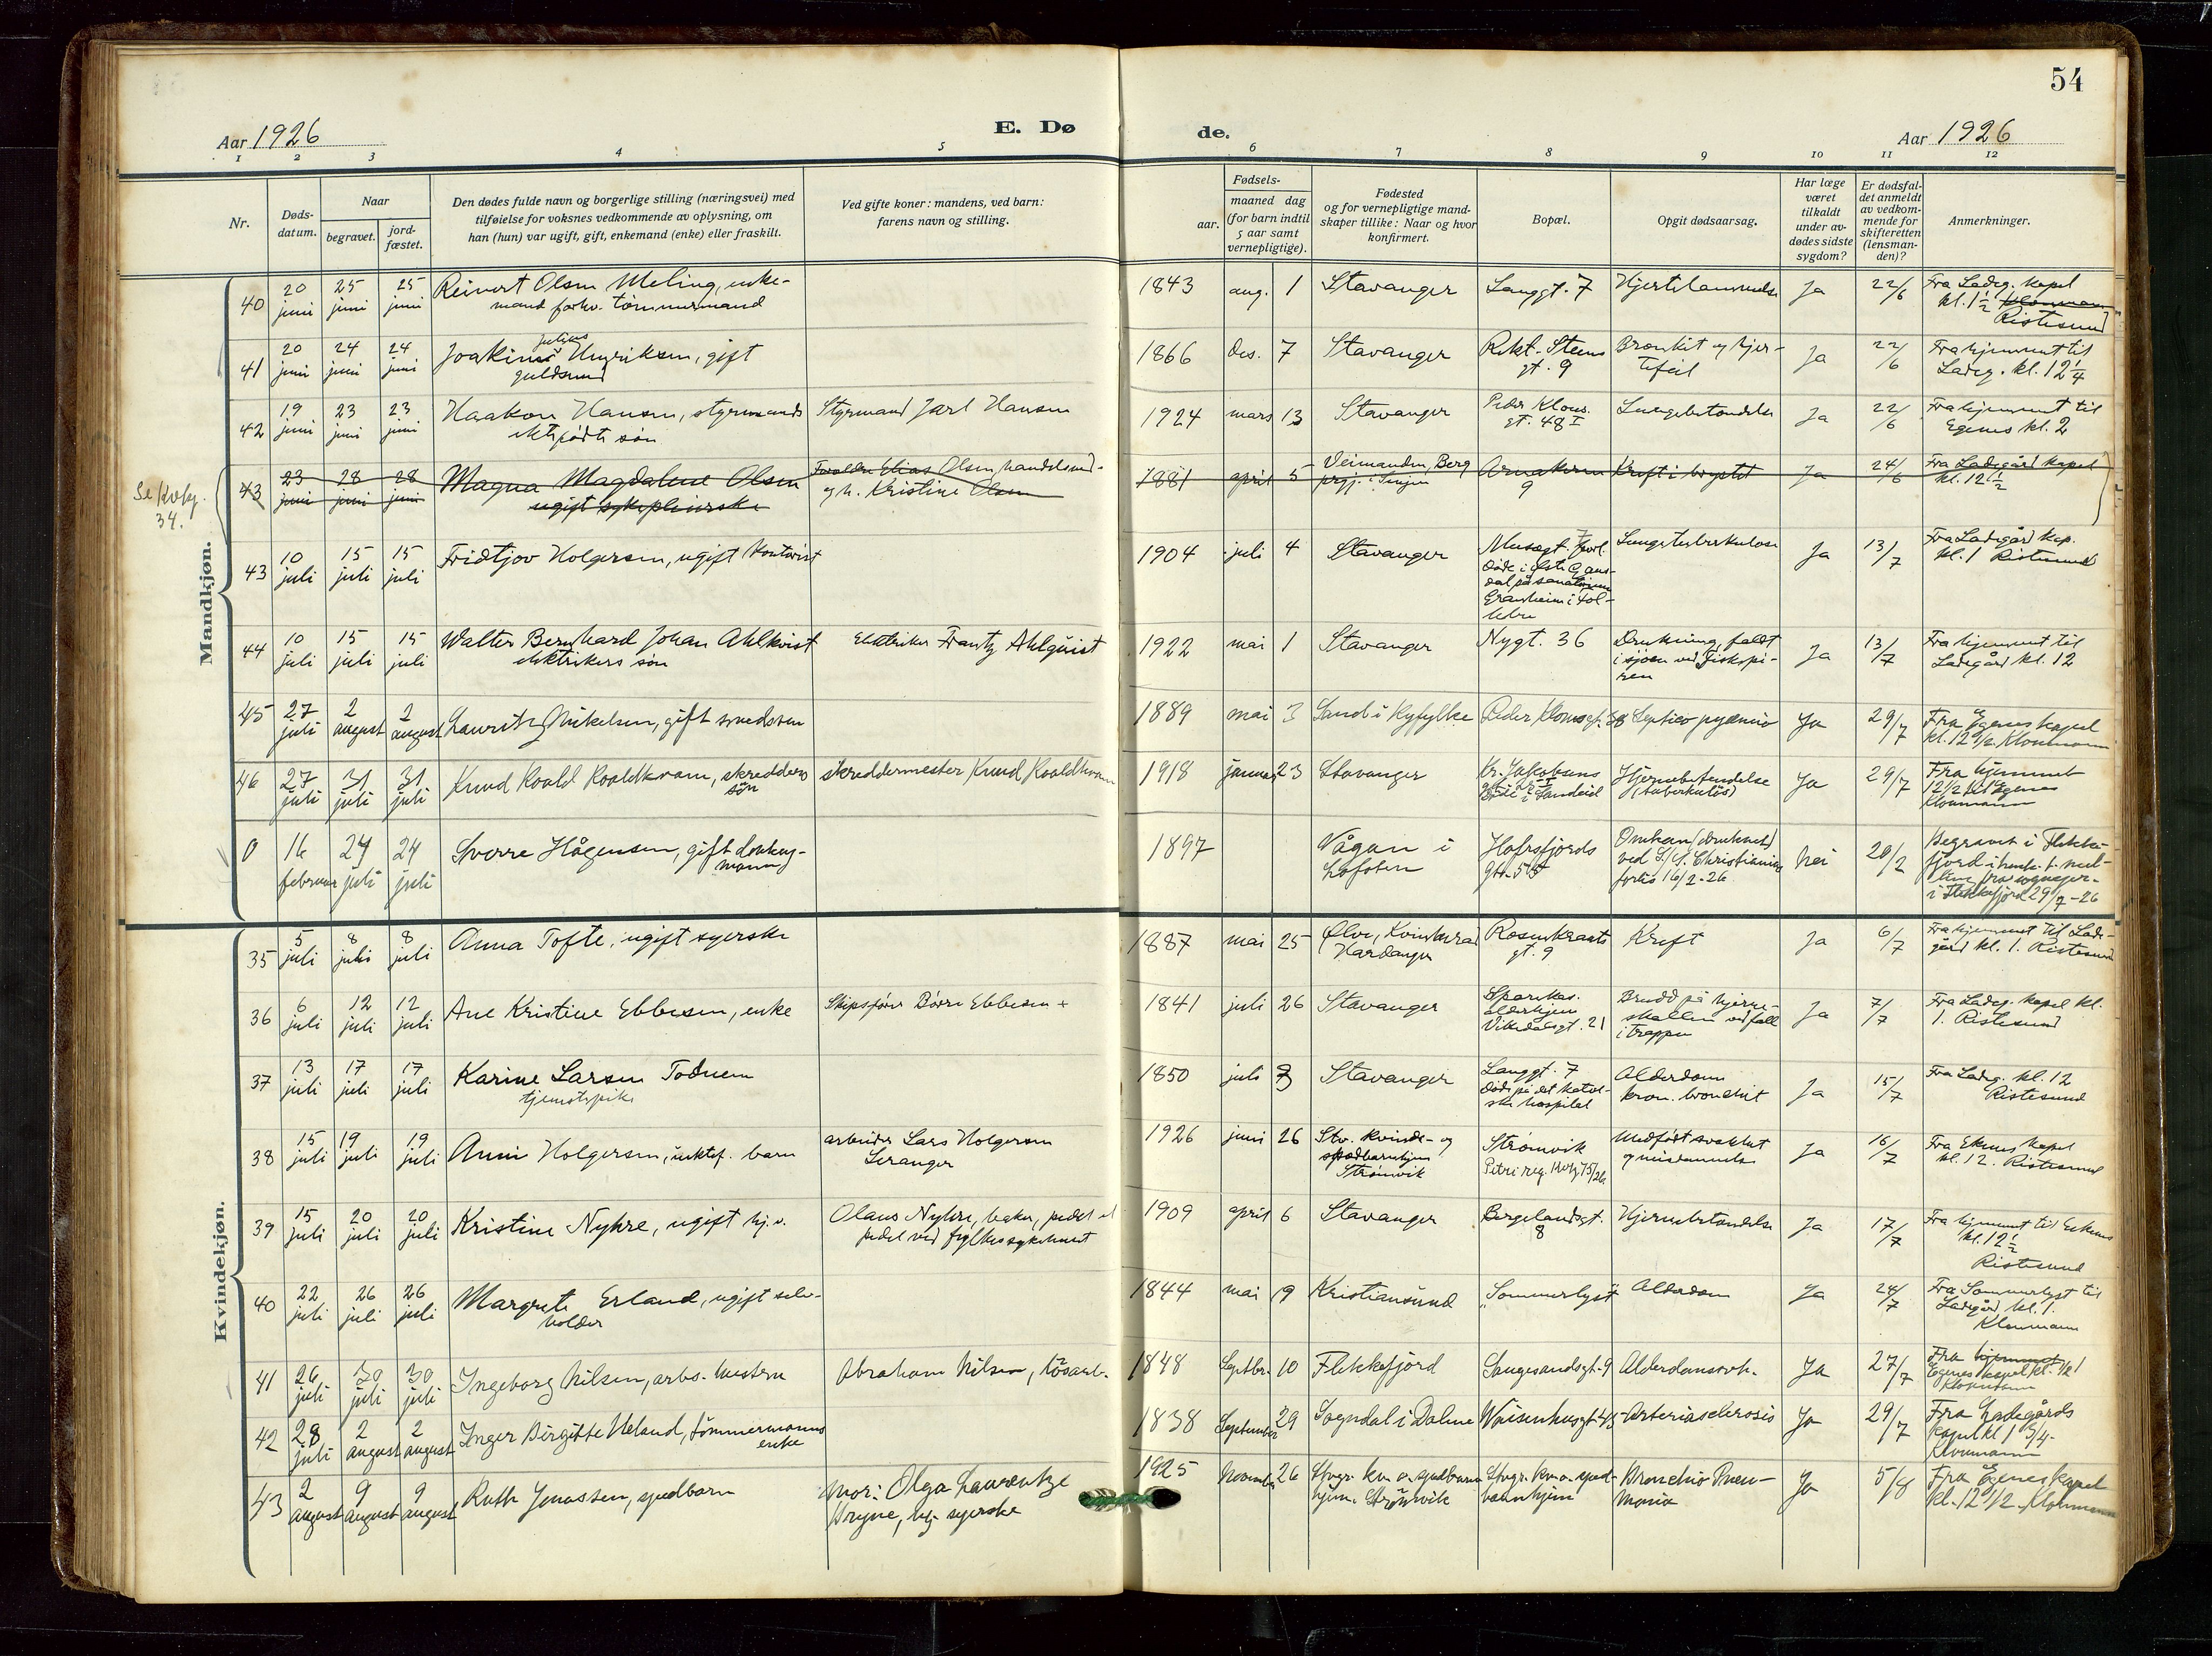 54
Aar 1926
E. Dø
de.
Aar 1926
1 2 3 4 5 6 7 8 9 10 11 12
Nr.
Døds-
datum.
Naar
begravet.
jord-
fæstet.
Den dødes fulde navn og borgerlige stilling (næringsvei) med
tilføielse for voksnes vedkommende av oplysning, om
han (hun) var ugift, gift, enkemand (enke) eller fraskilt.
Ved gifte koner: mandens, ved barn:
farens navn og stilling.
Fødsels-
aar.
maaned dag
(for barn indtil
5 aar samt
vernepligtige).
Fødested
og for vernepligtige mand-
skaper tillike: Naar og hvor
konfirmert.
Bopæl.
Opgit dødsaarsag.
Har læge
været
tilkaldt
under av-
dødes sidste
sygdom?
Er dødsfal-
det anmeldt
av vedkom-
mende for
skifteretten
(lensman-
den)?
Anmerkninger.
Mandkjøn.
40 20 juni 25 juni 25 juni Reinert Olsen Meling, enke-
mand forhv. tømmermand
1843 aug. 1 Stavanger Langgt. 7 Ja 22/6 Fra Ladeg. kapel
kl. 1 1/2
Ristesund
41 20 juni 24 juni 24 juni Joakim Julius Henriksen, gift
guldsmed
1866 des. 7 Stavanger Rekt. Steens
gt. 9 Bronkit og hjer-
tefeil Ja 22/6 Fra hjemmet til
Ladeg. kl. 12 1/4
42 19 juni 23 juni 23 juni Haakon Hansen, styrmands
ektefødte søn Styrmand Jarl Hansen
1924 mars 13 Stavanger Peder Klows
gt. 48 I Lungebetændelse Ja 22/6 Fra hjemmet til
Egenes kl. 2
Se kvkj.
34.
43 23 juni 28 juni 28 juni Magna Magdalene Olsen
ugift sykepleierske
Forældre Elias Olsen, handelsmd.
og h. Kristine Olsen
1881 april 5 Veimanden, Berg
prgj. i Senjen 9 Kreft i brystet Ja 24/6 Fra Ladegård kapel
kl. 12 1/2
43 10 juli 15 juli 15 juli Fridtjov Holgersen, ugift kontorist
1904 juli 4 Stavanger Musegt. 7
Døde i Østre Gaus-
dal på sanatorium
Granheim i Fol-
lebu Lungetuberkulose Ja 13/7 Fra Ladegård kap.
kl. 1 Ristesund
44 10 juli 15 juli 15 juli Walter Bernhard Johan Ahlkvist
elektrikers søn Elektriker Frantz Ahlquist
1922 mai 1 Stavanger Nygt. 36 Drukning faldt
i sjøen ved Fiskepi-
ren Ja 13/7 Fra hjemmet til
Ladegård kl. 12
45 27 juli 2 august 2 august Lauritz Mikelsen, gift smedsven
1889 mai 3 Sand i Ryfylke Peder Klowsgt. 38 Septico pyæmie Ja 29/7 Fra Egenes kapel
kl. 12 1/2. Kloumann
46 27 juli 31 juli 31 juli Knud Roald Roaldkvam, skredders
søn skreddermester Knud Roaldkvam
1918 januar 23 Stavanger Kr. Jakobsens
Døde i Sandeid Hjernebetendelse
(tuberkuløs) Ja 29/7 Fra hjemmet
12 1/2 til Egenes
Kloumann
0 16 februar 24 juli 24 juli Sverre Hågensen, gift donkey-
mann
1897 Vågan i
Lofoten Hafrsfjords
gt. 55 Omkom (druknet)
ved S/S. Christianias
forlis 16/2-26 nei 20/2 Begravet i Flekke-
fjord
i Flekkefjord 29/7-26
Kvindekjøn.
35 5 juli 8 juli 8 juli Anna Tofte, ugift syerske
1887 mai 25 Ølve, Kvinherad
Hardanger Rosenkrants
gt. 9 Kreft Ja 6/7 Fra hjemmet til Lade-
gård kl. 1. Ristesund
36 6 juli 12 juli 12 juli Ane Kristine Ebbesen, enke Skipsfører Børre Ebbesen +
1841 juli 26 Stavanger Sparekas.
alderhjem
Vikedalsgt. 21 Brudd på hjerne-
skallen ved fall
i trappen Ja 7/7 Fra Ladeg. kapel kl.
1. Ristesund
37 13 juli 17 juli 17 juli Karine Larsen Todnem
tjenestepike
1850 juli 3 Stavanger Langgt. 7
Døde på det katol-
ske hospital Alderdom
kron. bronchit Ja 15/7 Fra Ladeg. kl. 12
Ristesund
38 15 juli 19 juli 19 juli Anni Holgersen, uektef. barn arbeider Lars Holgersen
Leranger
1926 juni 26 Stv. kvinde- og
spædbarnhjem
Strømvik Strømvik
Petri reg. kvkj. 75/26 Medfødt svakhet
Ja 16/7 Fra Ekenes kapel
kl. 12. Ristesund
39 15 juli 20 juli 20 juli Kristine Nyhre, ugift hj.v. Olaus Nyhre, baker,
pedel ved fylkessykehuset
1909 april 6 Stavanger Bergelandsgt.
8 Hjernebetændelse Ja 17/7 Fra hjemmet til Eekenes
kl. 12 1/2
Ristesund
40 22 juli 26 juli 26 juli Margrete Erland, ugift selv-
holder
1844 mai 9 Kristiansund „Sommerlyst Alderdom Ja 24/7 Fra Sommerlyst til
Ladegård kl. 1.
Kloumann
41 26 juli 30 juli 30 juli Ingeborg Nilsen, arbs. hustru Abraham Nilsen, løsarb.
1848 Septbr. 10 Flekkefjord Langesandsgt. 9 Alderdomssvh. Ja 27/7 Fra hjemmet
Egenes kapel kl. 1/2 1
Kloumann
42 28 juli 2 august 2 august Inger Birgitte Ueland, tømmermanns
enke
1838 September 29 Sogndal i Dalene Waisenhusgt. 45 Arteriosclerosis Ja 29/7 Fra Ladegårds
kapel kl 1 3/4
Kloumann
43 2 august 9 august 9 august Ruth Jonassen, spedbarn mor: Olga Laurentze
Bryne, syerske
1925 November 26 Stvgr. kv. o. spedbarn
hjem. Strømvik Stvgr. kv. o. sped-
barnhjem Bronchio Pneu-
monia Ja 5/8 Fra Egenes kapel
kl. 12 1/2. Kloumann